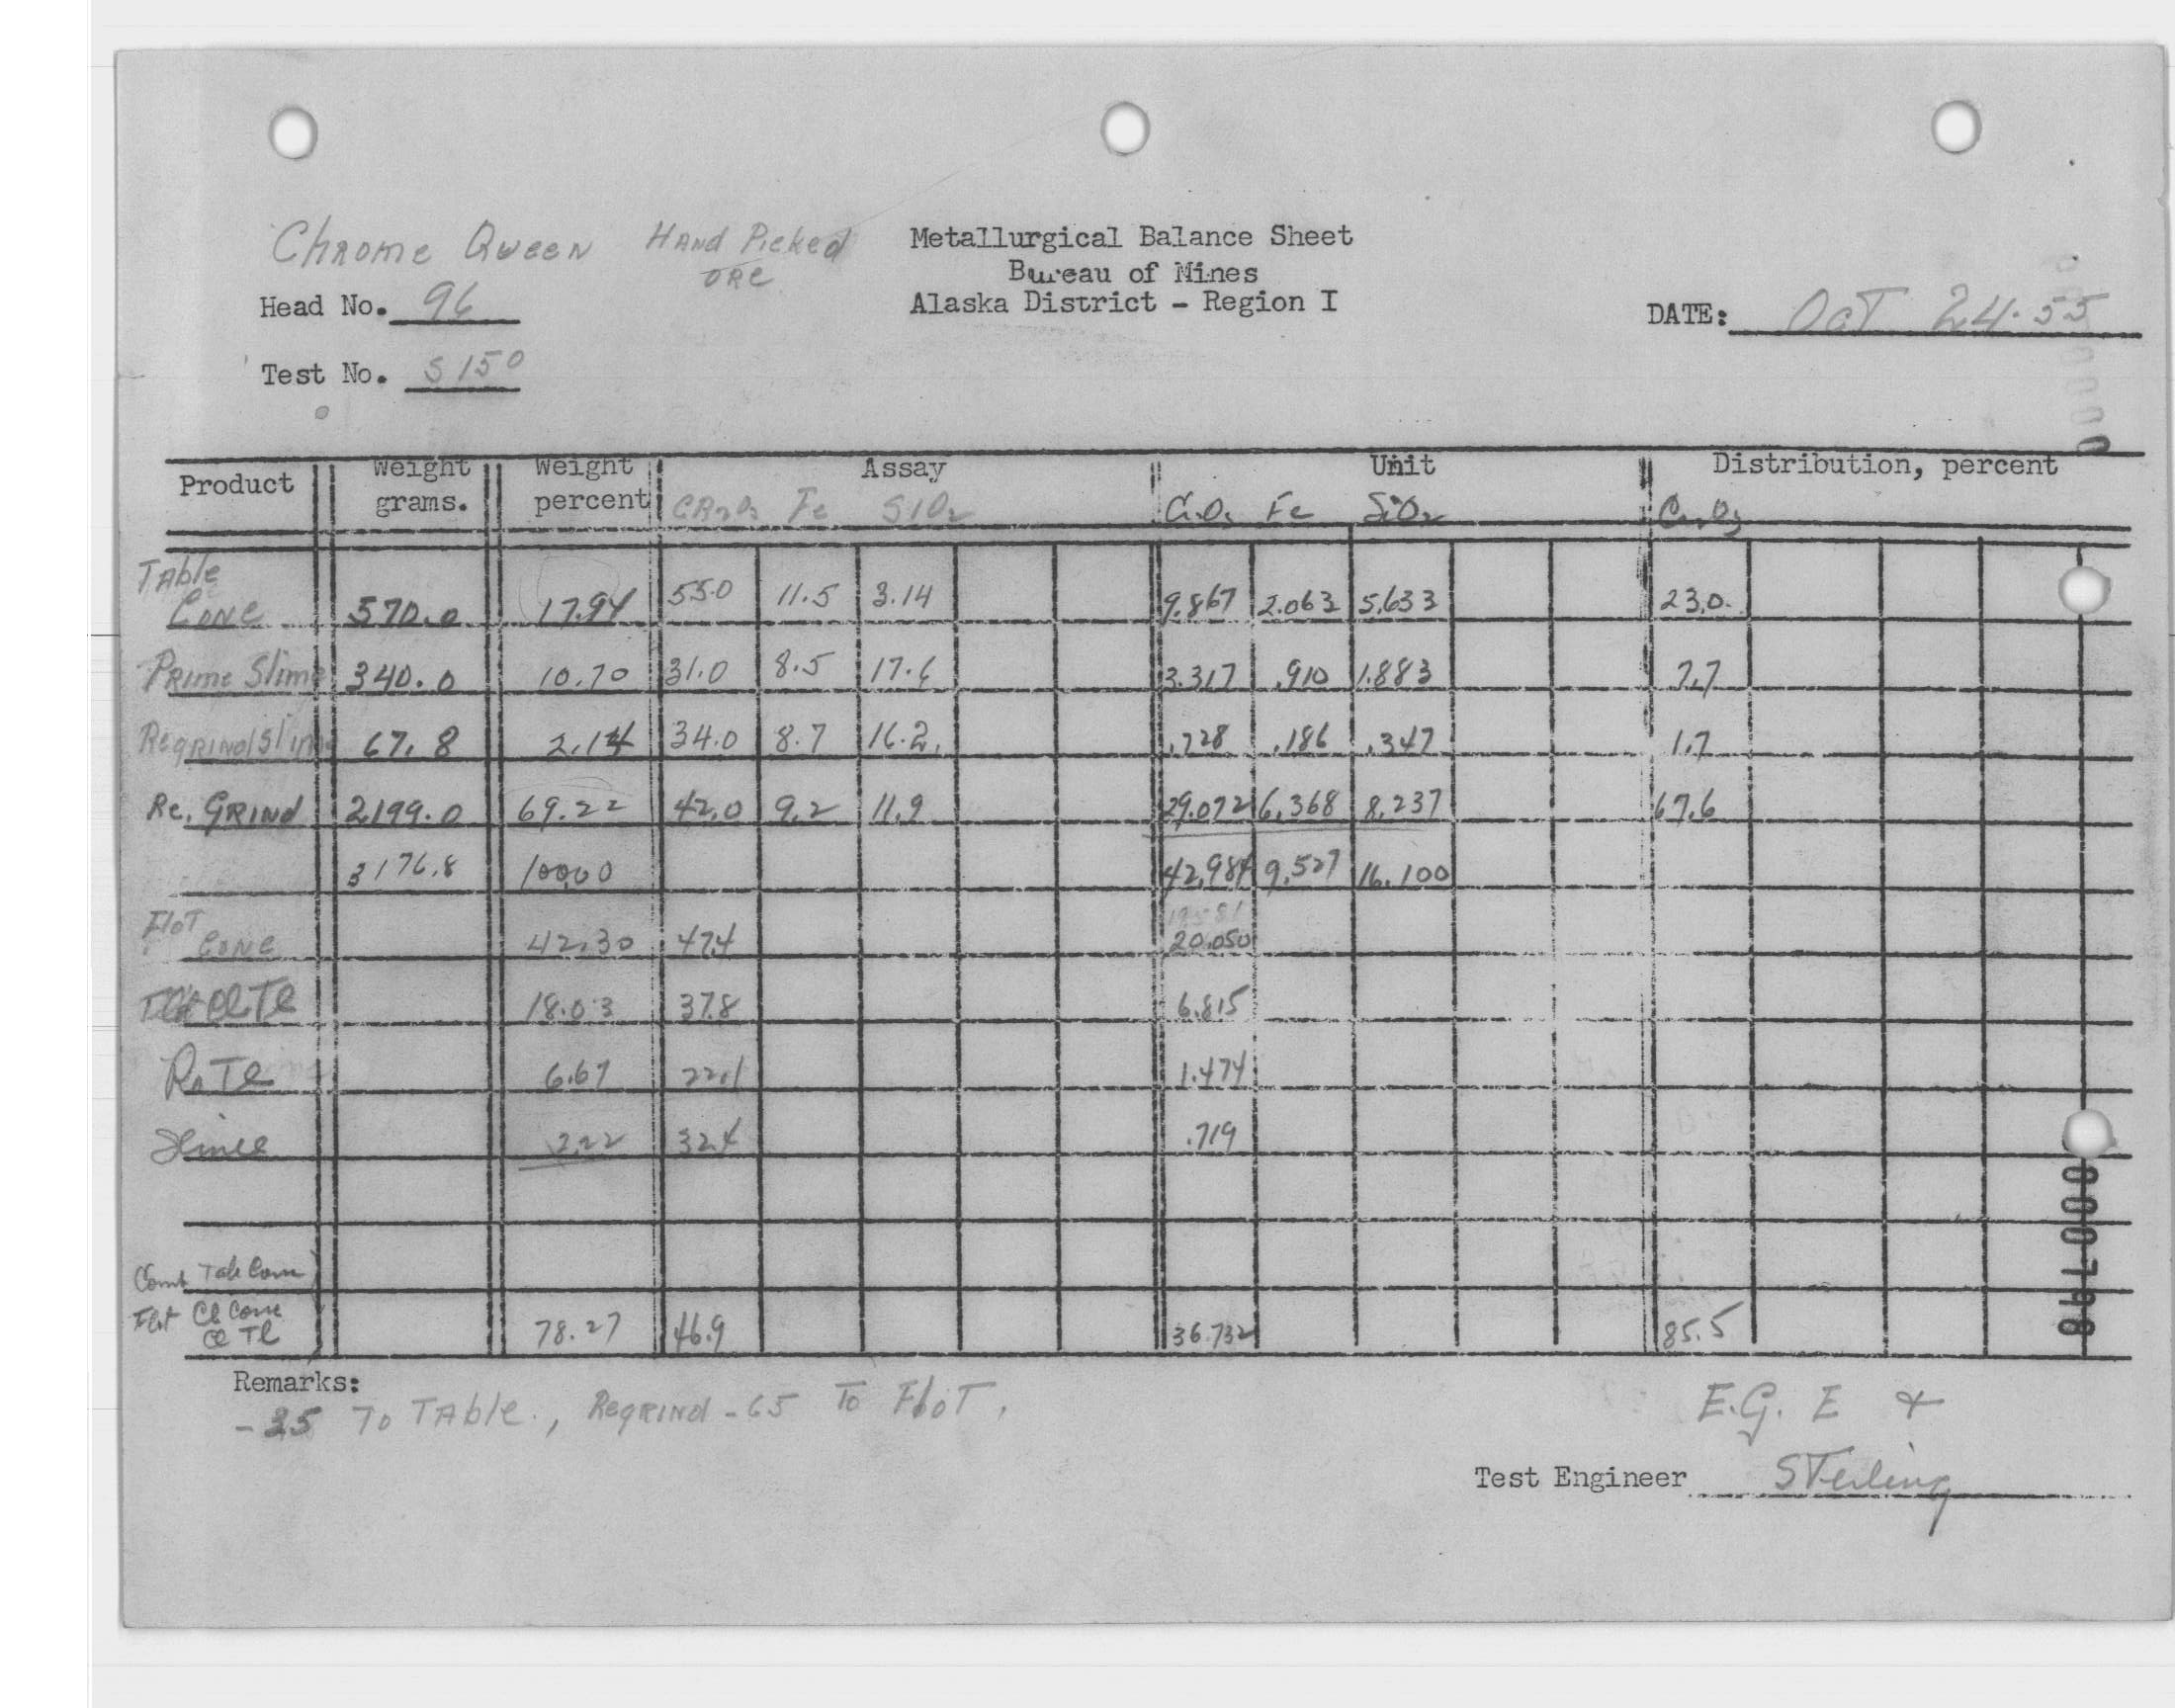 Chrome Queen Hand Picked Ore
Metallurgical Balance Sheet
Bureau of Mines
Alaska District - Region I
Head No. 96
DATE: Oct 24-55
Test No. S150
Product Weight grams. Weight percent Assay Unit Distribution, percent
Cr2O3 Fe SiO2 Cr2O3 Fe SiO2 Cr2O3
Table Conc 570.0 17.94 55.0 11.5 3.14 9.867 2.063 5.633 23.0
Prime Slime 340.0 10.70 31.0 8.5 17.6 3.317 .910 1.883 7.7
Regrind Slime 67.8 2.14 34.0 8.7 16.2 .728 .186 .347 1.7
Re. Grind 2199.0 69.22 42.0 9.2 11.9 29.072 6.368 8.237 67.6
3176.8 100.00 42.984 9.527 16.100
Flot Conc 42.30 47.4 20.050
Flot Cl Tl 18.03 37.8 6.815
Ro Tl 6.67 22.1 1.474
Slime 2.22 32.4 .719
Comb Tab Conc
Flot Cl Conc
Cl Tl 78.27 46.9 36.732 85.5
Remarks:
-35 To Table., Regrind -65 To Flot.
E.G. E &
Test Engineer Sterling